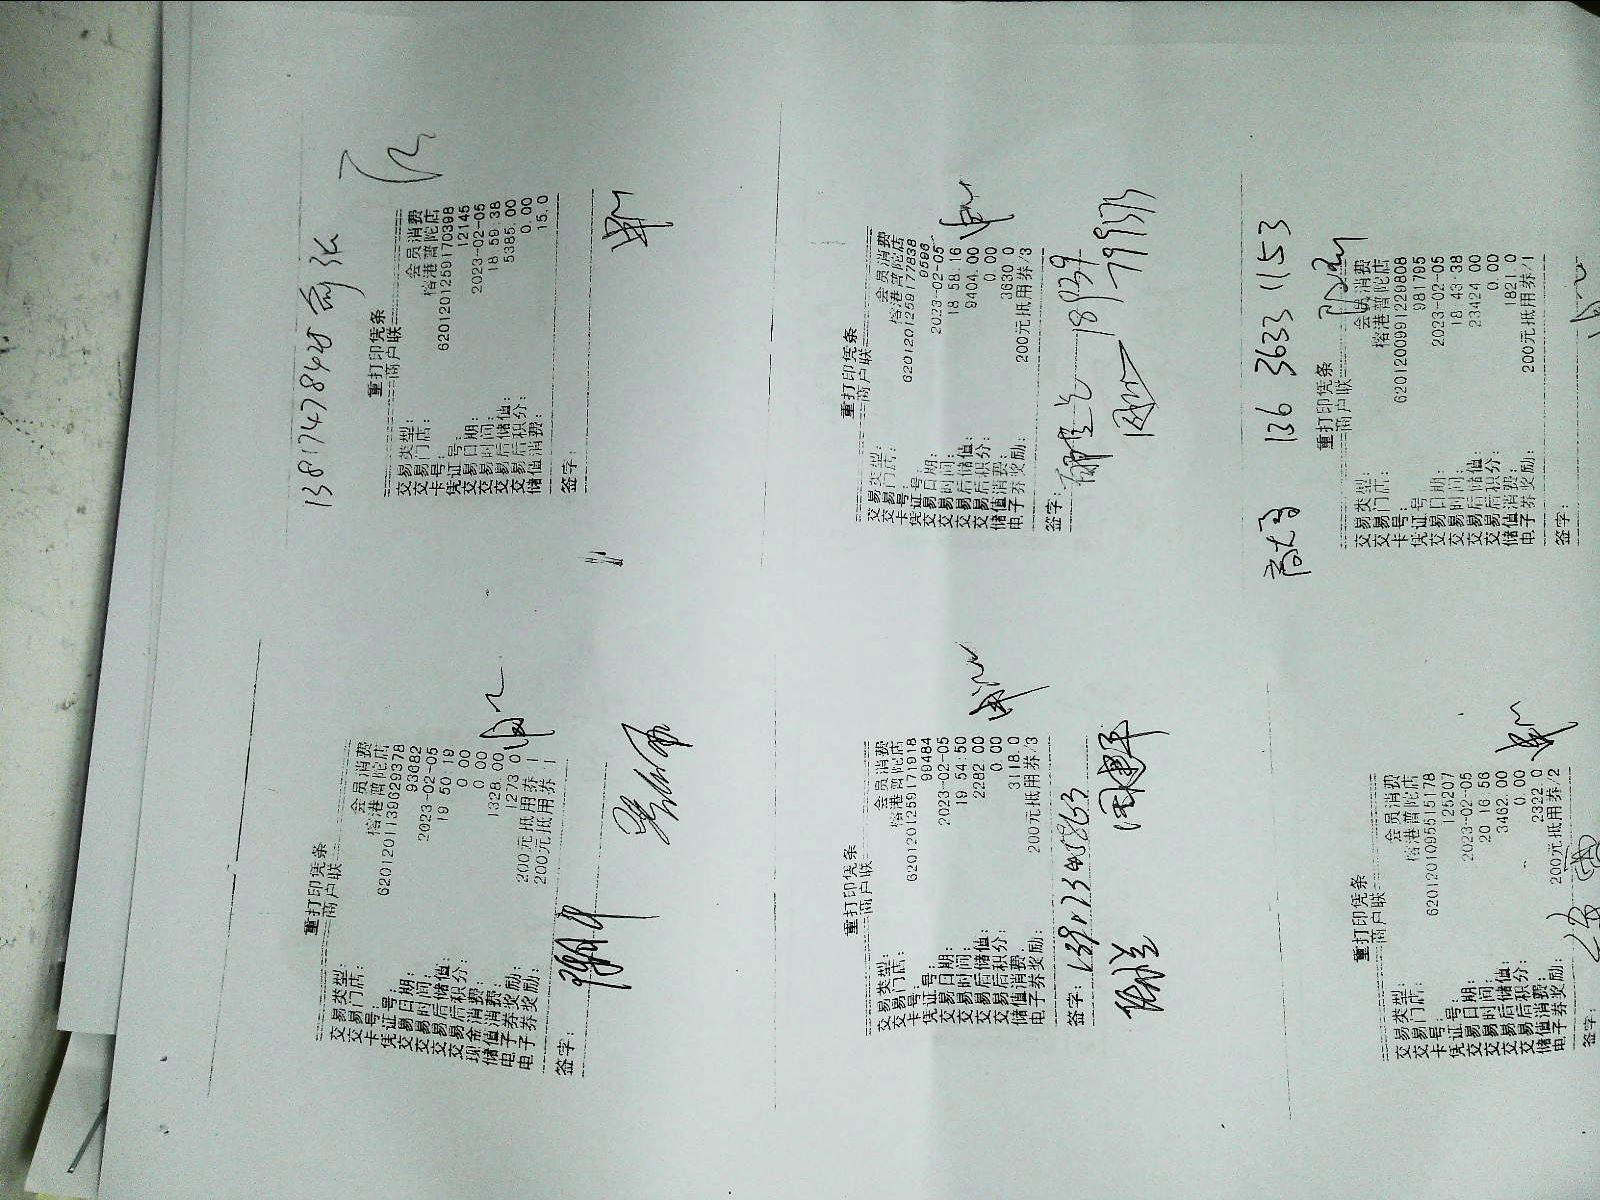 13817478425
重打印凭条
商户联
交易类型: 会员消费
交易门店: 榕港普陀店
卡号: 6201201259170398
凭证号: 12145
交易日期: 2023-02-05
交易时间: 18 59 38
交易后储值: 5385.00
交易后积分: 0.00
储值消费: 15.0
签字:
重打印凭条
商户联
交易类型: 会员消费
交易门店: 榕港普陀店
卡号: 6201201259177838
凭证号: 9596
交易日期: 2023-02-05
交易时间: 18 58 16
交易后储值: 9404.00
交易后积分: 0.00
储值消费: 3630.0
电子券奖励: 200元抵用券/3
签字:
136 3633 1153
重打印凭条
商户联
交易类型: 会员消费
交易门店: 榕港普陀店
卡号: 6201200991229808
凭证号: 981795
交易日期: 2023-02-05
交易时间: 18 43 38
交易后储值: 23424.00
交易后积分: 0.00
储值消费: 1821.0
电子券奖励: 200元抵用券/1
签字:
重打印凭条
商户联
交易类型: 会员消费
交易门店: 榕港普陀店
卡号: 6201201139629378
凭证号: 93682
交易日期: 2023-02-05
交易时间: 19 50 19
交易后储值: 0.00
交易后积分: 0.00
现金消费: 1328.00
储值消费: 1273.0
电子券奖励: 200元抵用券 1
电子券奖励: 200元抵用券 1
签字:
重打印凭条
商户联
交易类型: 会员消费
交易门店: 榕港普陀店
卡号: 6201201259171918
凭证号: 99484
交易日期: 2023-02-05
交易时间: 19 54:50
交易后储值: 2282.00
交易后积分: 0.00
储值消费: 3118.0
电子券奖励: 200元抵用券/3
签字:
重打印凭条
商户联
交易类型: 会员消费
交易门店: 榕港普陀店
卡号: 6201201095515178
凭证号: 125207
交易日期: 2023-02-05
交易时间: 20 16 56
交易后储值: 3492.00
交易后积分: 0.00
储值消费: 2322.0
电子券奖励: 200元抵用券/2
签字: